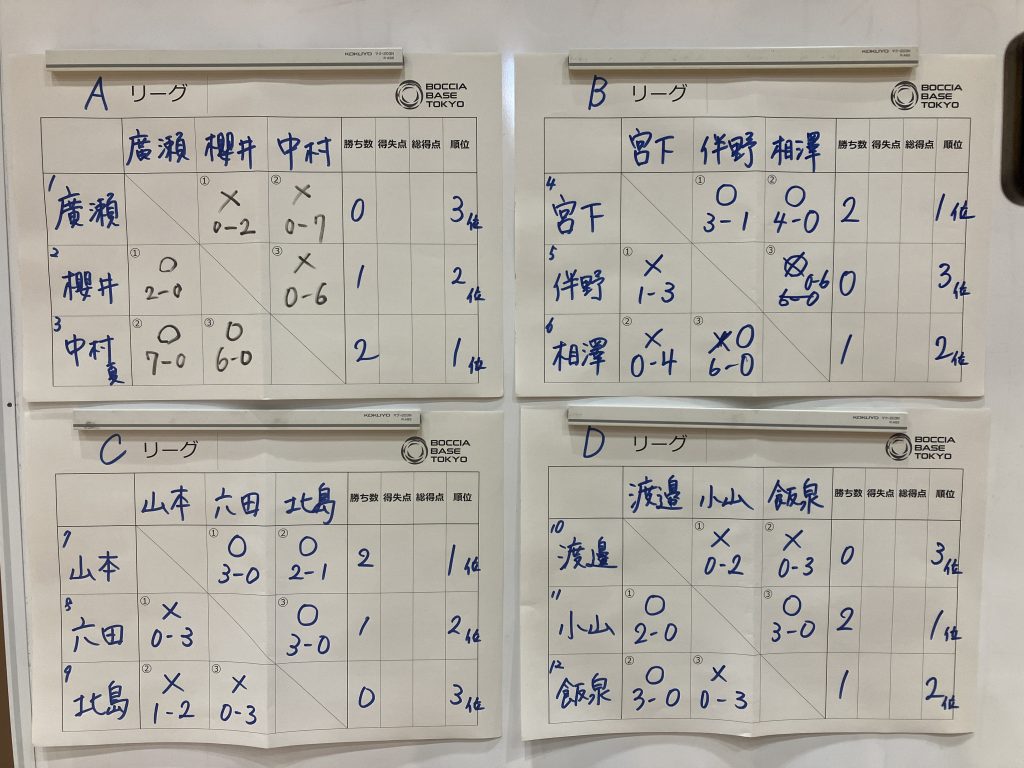 KOKUYO
A リーグ
BOCCIA BASE TOKYO
廣瀬 櫻井 中村 勝ち数 得失点 総得点 順位
1 廣瀬 ① × 0-2 ② × 0-7 0 3位
2 櫻井 ① ○ 2-0 ③ × 0-6 1 2位
3 中村真 ② ○ 7-0 ③ ○ 6-0 2 1位
KOKUYO
B リーグ
BOCCIA BASE TOKYO
宮下 伴野 相澤 勝ち数 得失点 総得点 順位
4 宮下 ① ○ 3-1 ② ○ 4-0 2 1位
5 伴野 ① × 1-3 ③ × 0-6 6-0 0 3位
6 相澤 ② × 0-4 ③ × ○ 6-0 1 2位
KOKUYO
C リーグ
BOCCIA BASE TOKYO
山本 六田 北島 勝ち数 得失点 総得点 順位
7 山本 ① ○ 3-0 ② ○ 2-1 2 1位
8 六田 ① × 0-3 ③ ○ 3-0 1 2位
9 北島 ② × 1-2 ③ × 0-3 0 3位
KOKUYO
D リーグ
BOCCIA BASE TOKYO
渡邉 小山 飯泉 勝ち数 得失点 総得点 順位
10 渡邉 ① × 0-2 ② × 0-3 0 3位
11 小山 ① ○ 2-0 ③ ○ 3-0 2 1位
12 飯泉 ② ○ 3-0 ③ × 0-3 1 2位